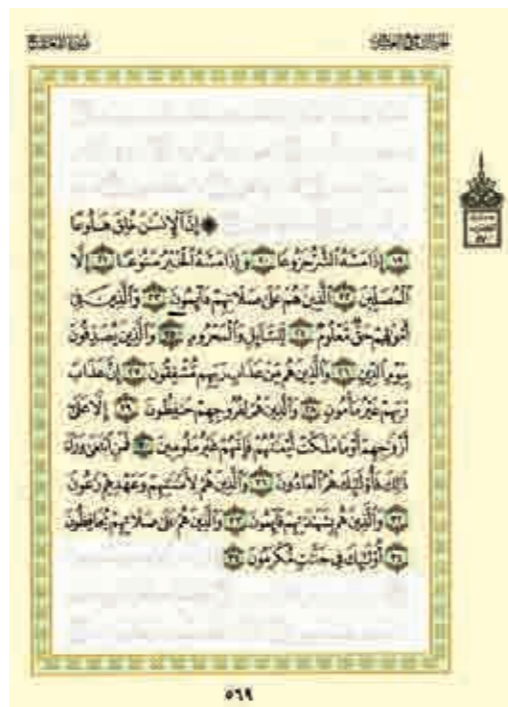 سورة المعارج
۞ إِنَّ ٱلْإِنسَٰنَ خُلِقَ هَلُوعًا
١٩ إِذَا مَسَّهُ ٱلشَّرُّ جَزُوعًا ٢٠ وَإِذَا مَسَّهُ ٱلْخَيْرُ مَنُوعًا ٢١ إِلَّا
ٱلْمُصَلِّينَ ٢٢ ٱلَّذِينَ هُمْ عَلَىٰ صَلَاتِهِمْ دَآئِمُونَ ٢٣ وَٱلَّذِينَ فِىٓ
أَمْوَٰلِهِمْ حَقٌّ مَّعْلُومٌ ٢٤ لِّلسَّآئِلِ وَٱلْمَحْرُومِ ٢٥ وَٱلَّذِينَ يُصَدِّقُونَ
بِيَوْمِ ٱلدِّينِ ٢٦ وَٱلَّذِينَ هُم مِّنْ عَذَابِ رَبِّهِم مُّشْفِقُونَ ٢٧ إِنَّ عَذَابَ
رَبِّهِمْ غَيْرُ مَأْمُونٍ ٢٨ وَٱلَّذِينَ هُمْ لِفُرُوجِهِمْ حَٰفِظُونَ ٢٩ إِلَّا عَلَىٰٓ
أَزْوَٰجِهِمْ أَوْ مَا مَلَكَتْ أَيْمَٰنُهُمْ فَإِنَّهُمْ غَيْرُ مَلُومِينَ ٣٠ فَمَنِ ٱبْتَغَىٰ وَرَآءَ
ذَٰلِكَ فَأُو۟لَٰٓئِكَ هُمُ ٱلْعَادُونَ ٣١ وَٱلَّذِينَ هُمْ لِأَمَٰنَٰتِهِمْ وَعَهْدِهِمْ رَٰعُونَ
٣٢ وَٱلَّذِينَ هُم بِشَهَٰدَٰتِهِمْ قَآئِمُونَ ٣٣ وَٱلَّذِينَ هُمْ عَلَىٰ صَلَاتِهِمْ يُحَافِظُونَ
٣٤ أُو۟لَٰٓئِكَ فِى جَنَّٰتٍ مُّكْرَمُونَ ٣٥
٥٦٩